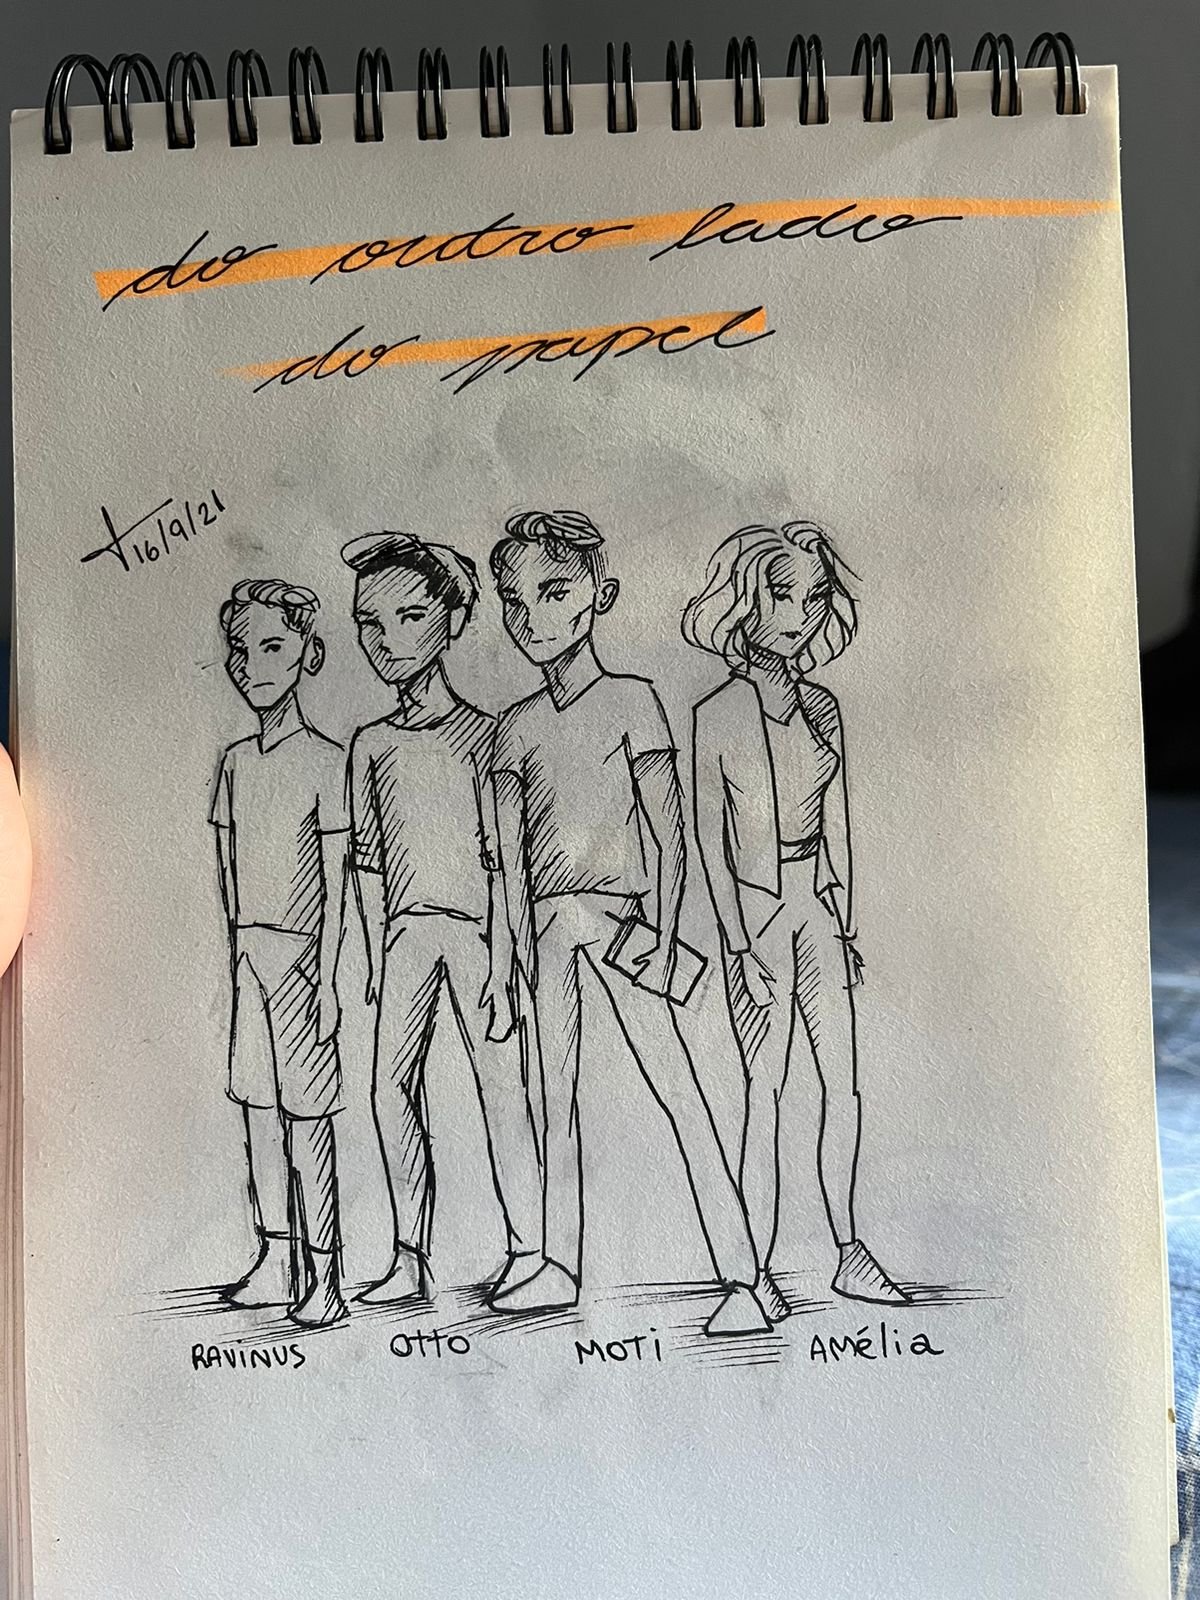 do outro lado
do papel
16/9/21
RAVINUS OTTO MOTI AMÉLIA